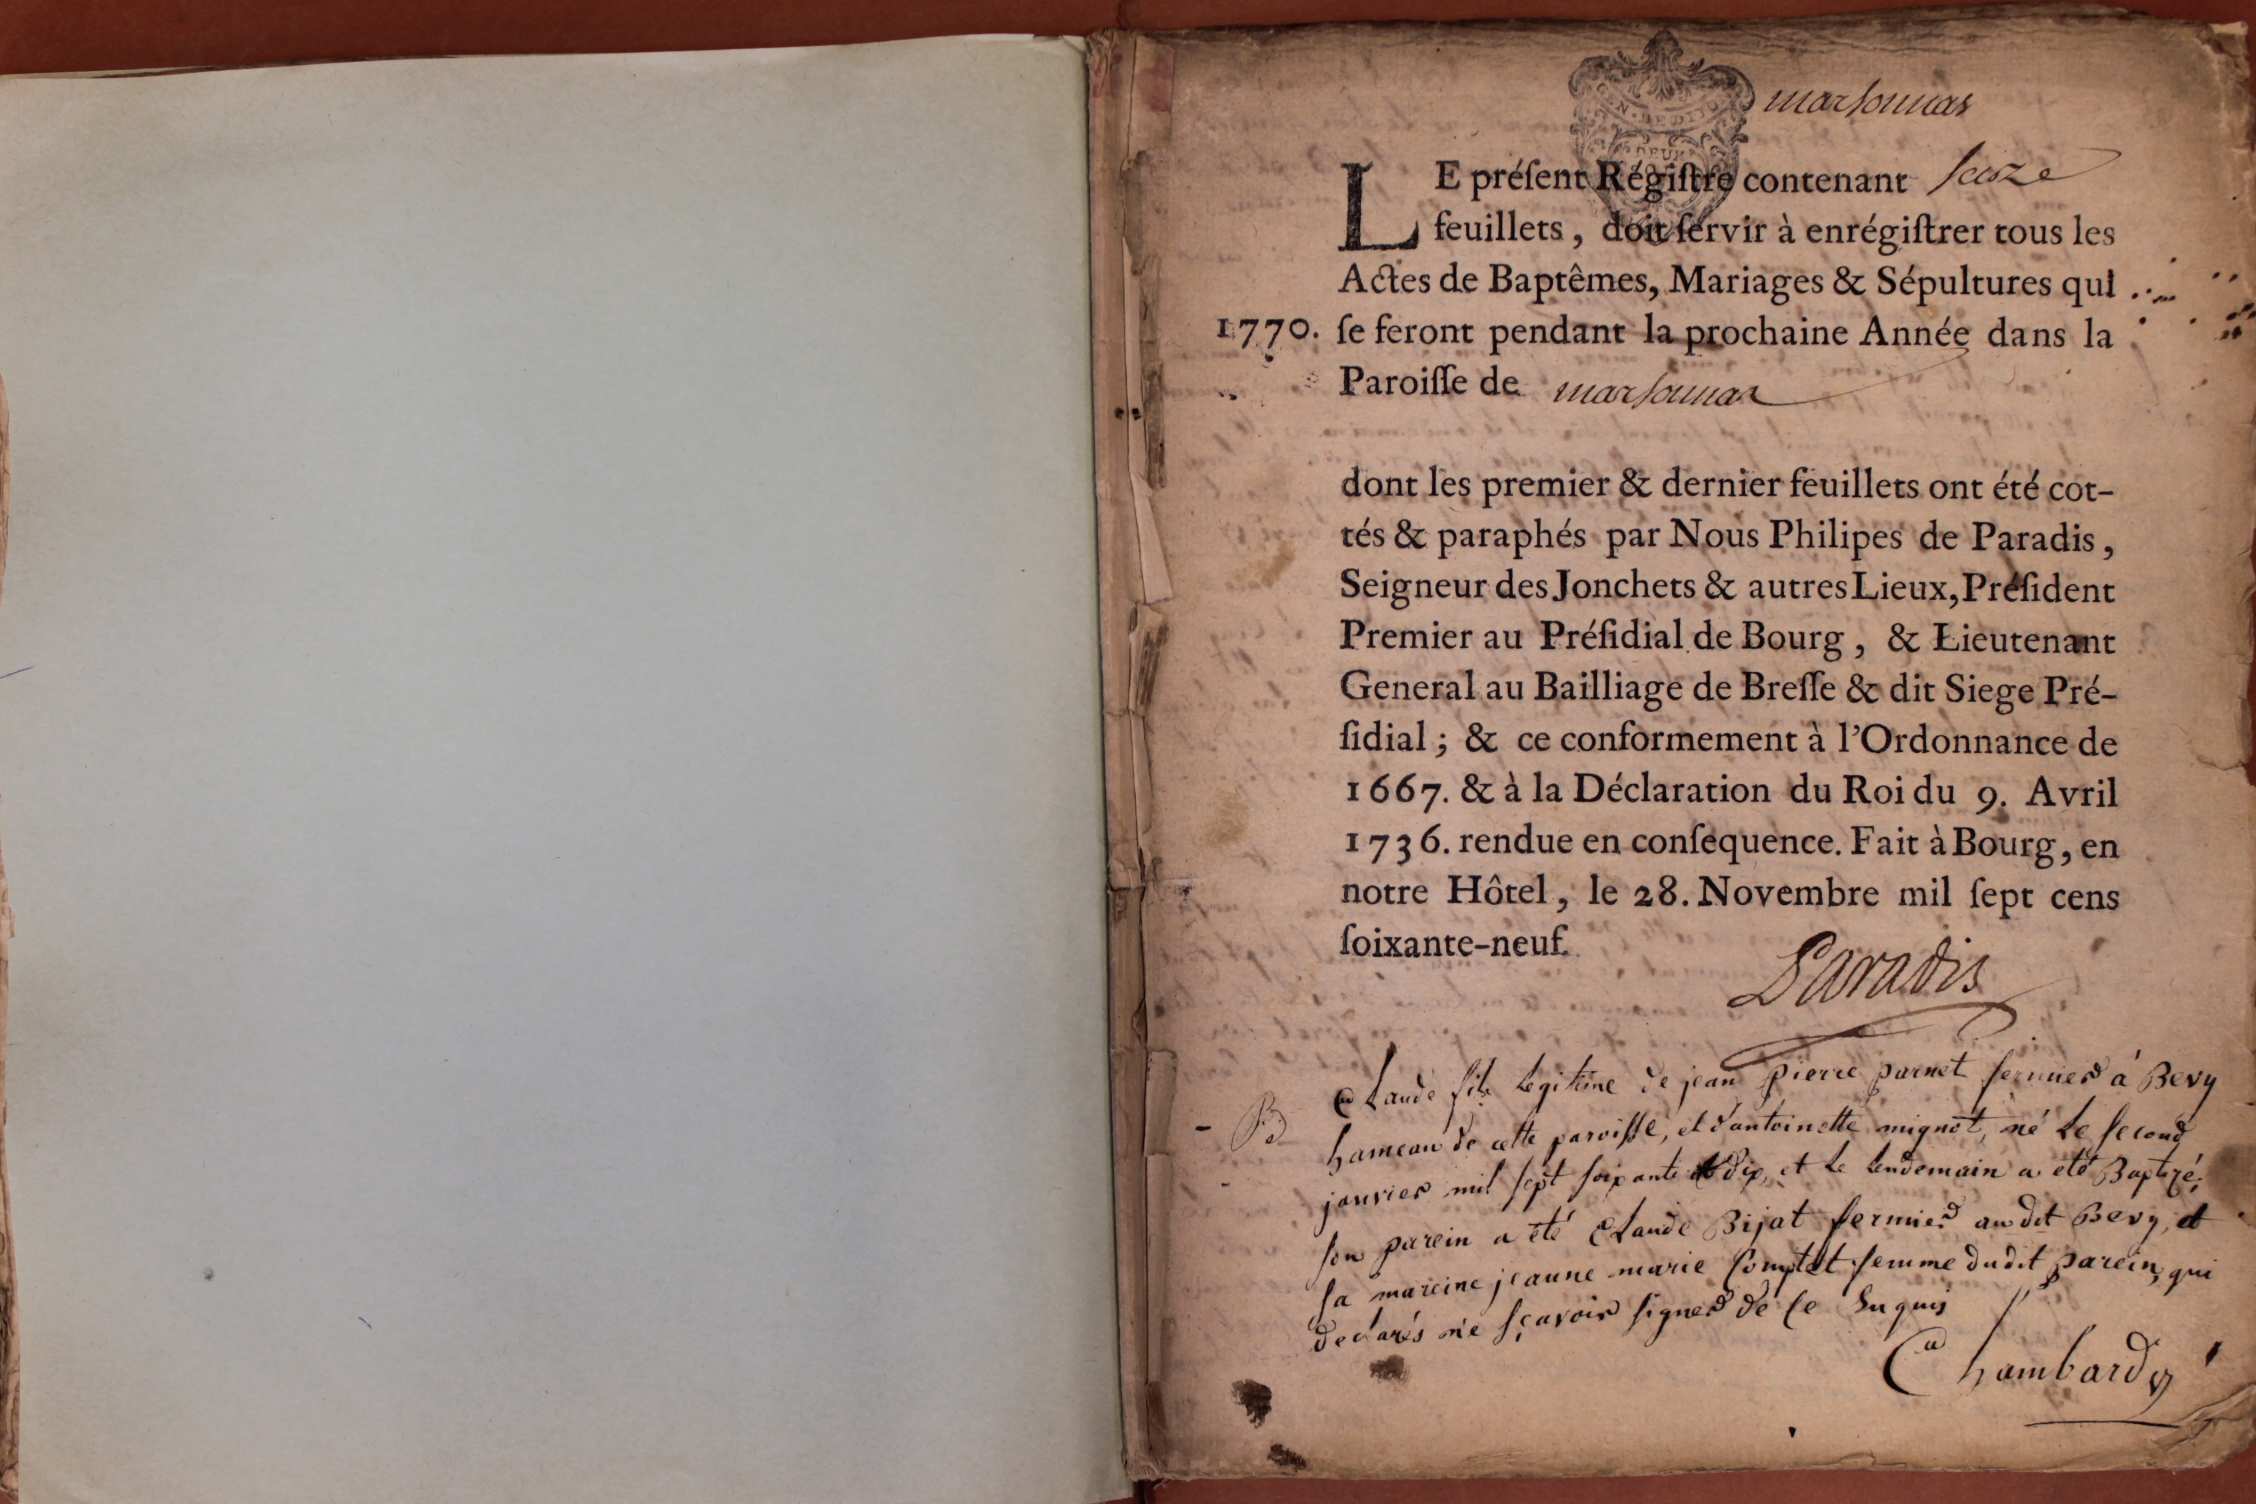 marsonnas
LE préſent Régiſtre contenant seize
feuillets, doit ſervir à enrégiſtrer tous les
Actes de Baptêmes, Mariages & Sépultures qui
1770. ſe feront pendant la prochaine Année dans la
Paroiſſe de marsonnas
dont les premier & dernier feuillets ont été cot-
tés & paraphés par Nous Philipes de Paradis,
Seigneur des Jonchets & autres Lieux, Préſident
Premier au Préſidial de Bourg, & Lieutenant
General au Bailliage de Breſſe & dit Siege Pré-
ſidial; & ce conformement à l'Ordonnance de
1667. & à la Déclaration du Roi du 9. Avril
1736. rendue en conſequence. Fait à Bourg, en
notre Hôtel, le 28. Novembre mil ſept cens
ſoixante-neuf.
Paradis
Claude fils legitime de jean pierre parnet fermier à Bevy
hameau de cette paroisse, et d'antoinette mignot, né le second
janvier mil sept soixante et dix, et le lendemain a été Baptizé,
son parein a été Claude Bijat fermier audit Bevy, et
sa mareine jeanne marie Comptet femme dudit parein, qui
declarés ne sçavoir signer de ce Enquis
Chambard